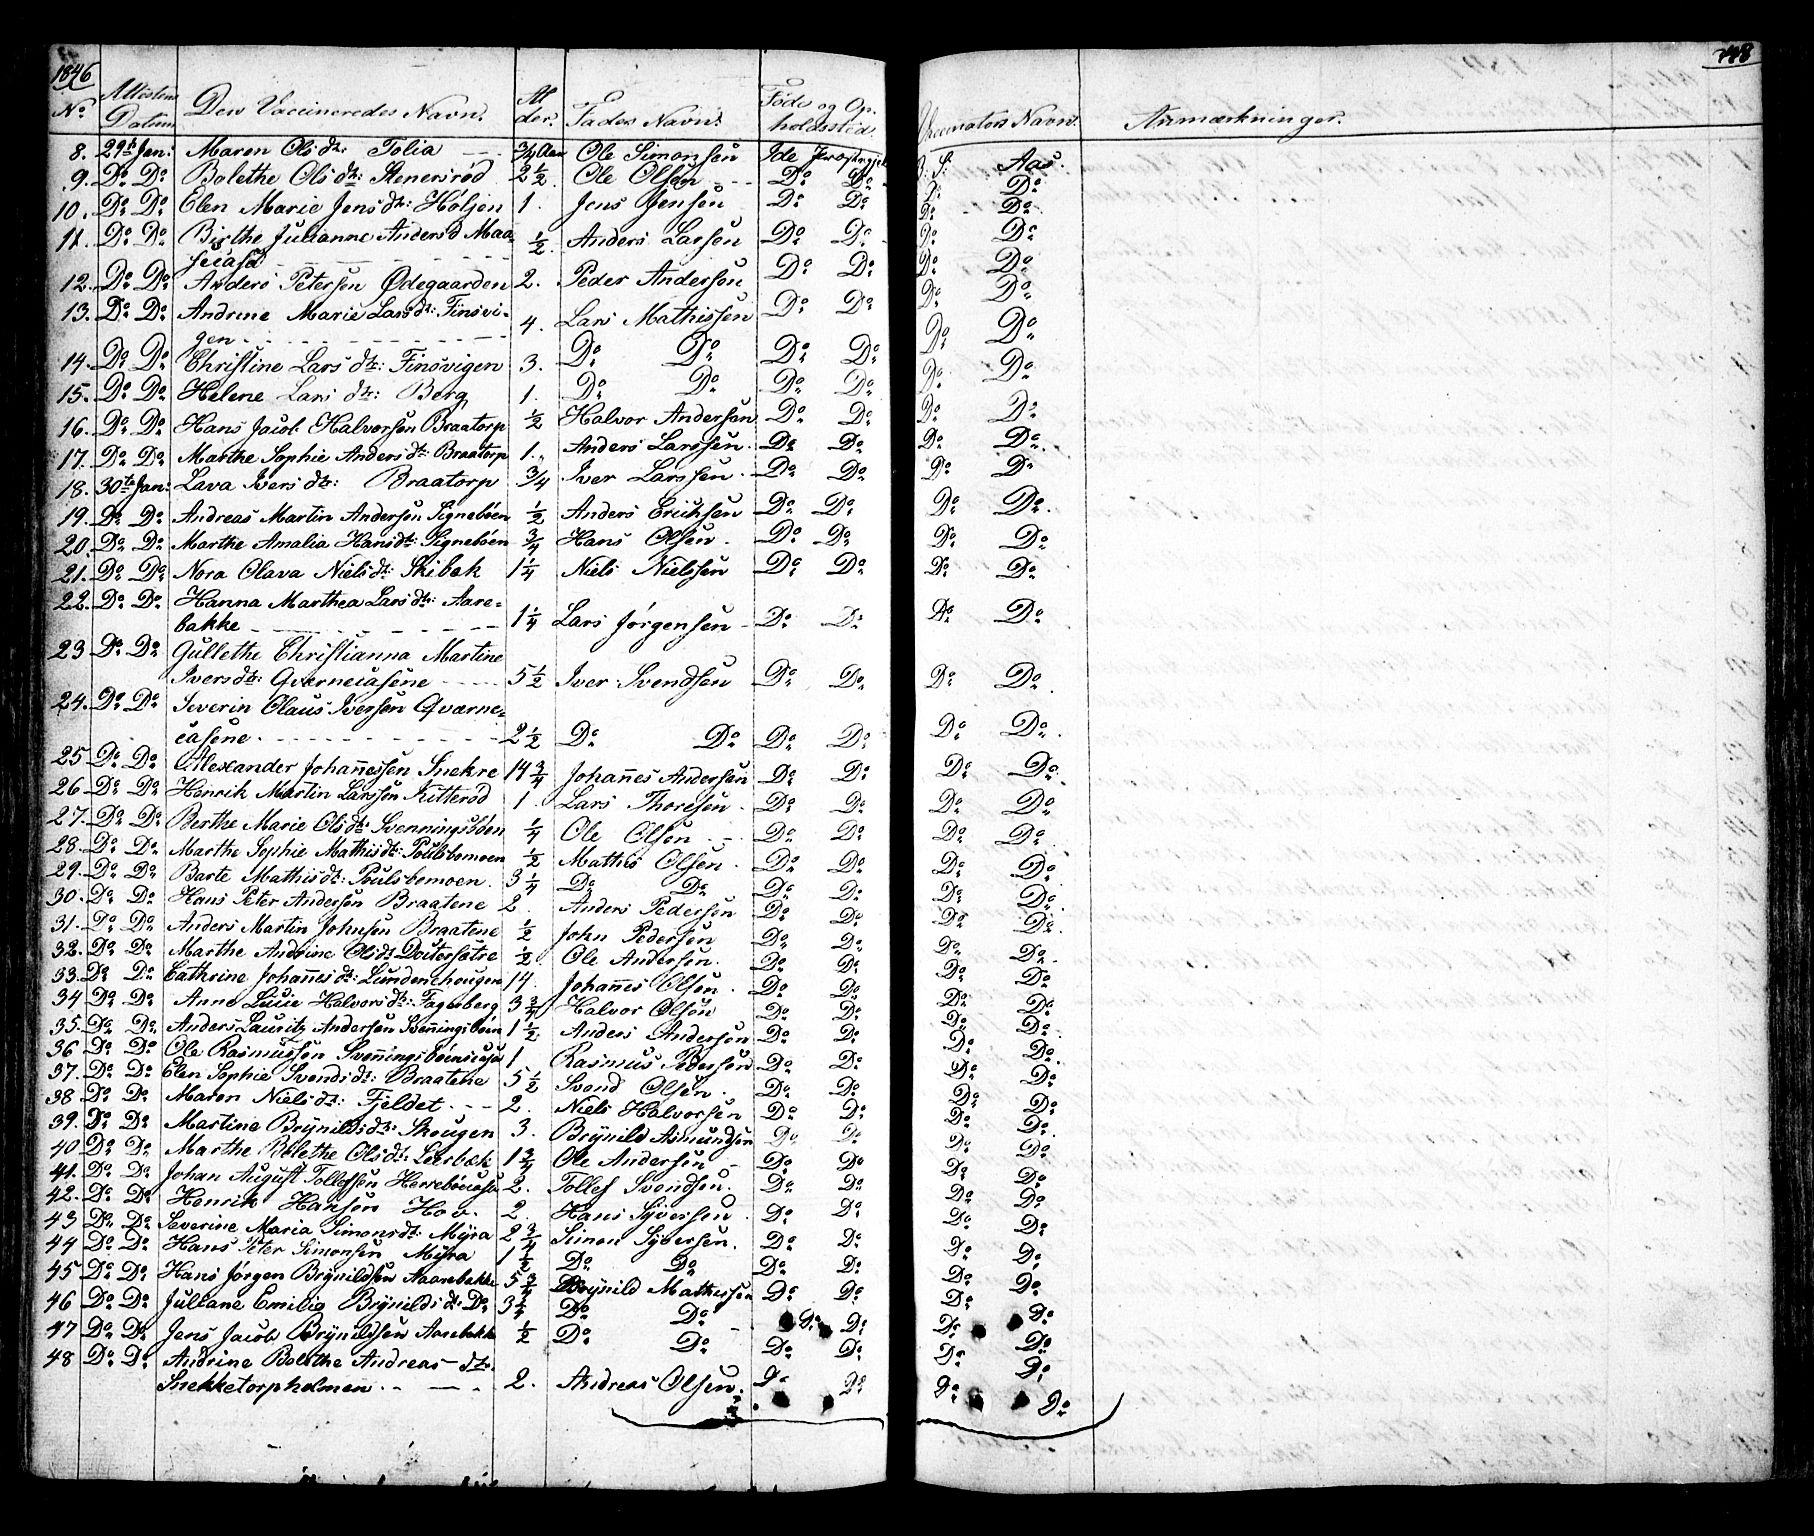 1846
748
No Attestens Datum Den Vaccineredes Navn. Alder. Faders Navn. Føde og Opholdssted. Vaccinators Navn. Anmærkninger.
8. 29te Jan: Maren Olsdtr: Tolia 3/4 Aar Ole Simonsen Ide Præstegjeld S: Aas.
9. Do Do Bolethe Olsdtr: Stenersrød 2 1/2 Ole Olsen Do Do Do Do
10. Do Do Elen Marie Jensdtr: Høljen 1. Jens Jensen Do Do Do Do
11. Do Do Birthe Julianne Andersd Maa-
seiasd 1/2 Anders Larsen Do Do Do Do
12. Do Do Anders Petersen Ødegaarden 2. Peder Andersen Do Do Do Do
13. Do Do Andrine Marie Larsdtr: Finsvi-
gen 4. Lars Mathissen Do Do Do Do
14. Do Do Christine Larsdtr: Finsvigen 3. Do Do Do Do Do Do
15. Do Do Helene Larsdtr: Berg 1. Do Do Do Do Do Do
16. Do Do Hans Jacob Halvorsen Braatorp 1/2 Halvor Andersen Do Do Do Do
17. Do Do Marthe Sophie Andersdtr: Braatorp 1. Anders Larssen Do Do Do Do
18. 30te Jan: Lava Iversdtr: Braatorp 3/4 Iver Larssen Do Do Do Do
19. Do Do Andreas Martin Andersen Signebøen 1/2 Anders Ericksen Do Do Do Do
20. Do Do Marthe Amalia Hansdtr: Signebøen 3/4 Hans Olsen Do Do Do Do
21. Do Do Nora Olava Nielsdtr: Skibæk 1 1/4 Niels Nielssen Do Do Do Do
22. Do Do Hanna Marthea Larsdtr: Aare-
bakke 1 1/4 Lars Jørgensen Do Do Do Do
23 Do Do Gullethe Christianna Martine
Iversdtr: Qverneiasene 5 1/2 Iver Svendsen Do Do Do Do
24. Do Do Severin Olaus Iversen Qværne-
easene 2 1/2 Do Do Do Do Do Do
25 Do Do Alexander Johannessen Snekre 14 3/4 Johannes Andersen Do Do Do Do
26 Do Do Henrik Martin Larssen Kitterød 1 Lars Thoresen Do Do Do Do
27. Do Do Berthe Marie Olsdtr: Svenningsbøen 1/4 Ole Olsen Do Do Do Do
28. Do Do Marthe Sophie Mathisdtr: Poulsbomoen 1/2 Mathis Olsen Do Do Do Do
29. Do Do Barte Mathisdtr: Poulsbomoen. 3 1/4 Do Do Do Do Do Do
30. Do Do Hans Peter Andersen Braatene 2 Anders Pedersen Do Do Do Do
31. Do Do Anders Martin Johnsen Braatene 1/2 John Pedersen Do Do Do Do
32. Do Do Marthe Andrine Olsdtr: 1/2 Ole Andersen. Do Do Do Do
33. Do Do Cathrine Johannesdtr: Lundenehougen 14. Johannes Olsen Do Do Do Do
34 Do Do Anne Lucie Halvorsdtr: Fagerberg 3 3/4 Halvor Olsen Do Do Do Do
35. Do Do Anders Lauritz Andersen Svenningsbøen 1 1/2 Anders Andersen Do Do Do Do
36 Do Do Ole Rasmussen 1 Rasmus Pedersen Do Do Do Do
37. Do Do Elen Sophie Svendsdtr: Braatene 5 1/2 Svend Olsen Do Do Do Do
38 Do Do Maren Nielsdtr: Fjeldet 2. Niels Halvorsen Do Do Do Do
39. Do Do Martina Brynildsdtr: Skougen 3. Brynild Asmundsen Do Do Do Do
40 Do Do Marthe Bolethe Olsdtr: Leerbæk 1 3/4 Ole Andersen Do Do Do Do
41. Do Do Johan August Tollefsen 2. Tollef Svendsen. Do Do Do Do
42. Do Do Henrik Hansen Hov. 2. Hans Syversen Do Do Do Do
43 Do Do Severine Maria Simonsdtr: Myra 2 3/4 Simon Syversen. Do Do Do Do
44 Do Do Hans Peter Simonsen Myra 1 1/2 Do Do Do Do Do Do
45 Do Do Hans Jørgen Brynildsen Aarebakke 5 3/4 Brynild Mathissen Do Do Do Do
46 Do Do Juliane Emilie Brynildsdtr: Do 3 1/4 Do Do Do Do Do Do
47 Do Do Jens Jacob Brynildsen Aarebakke 1/2 Do Do Do Do Do Do
48 Do Do Andrine Bolethe Andreas-dtr:
Snekketorpholmen 2. Andreas Olsen. Do Do Do Do